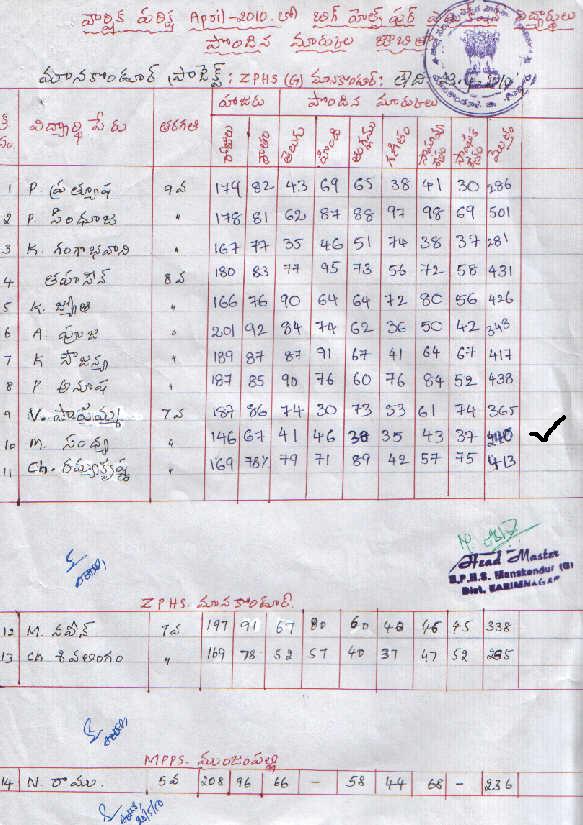 వార్షిక పరీక్ష April-2010 లో బిగ్ హెల్ప్ ఫర్ విద్యార్థులు
పొందిన మార్కుల
మానకొండూర్ ప్రాజెక్ట్ : ZPHS (G) మానకొండూర్:
హాజరు పొందిన మార్కులు
విద్యార్థి పేరు తరగతి హాజరు శాతం తెలుగు హిందీ ఇంగ్లీషు గణితం మొత్తం
1 P. ప్రత్యూష 9వ 179 82 43 69 65 38 41 30 286
2 P. సింధూజ " 178 81 62 87 88 97 98 69 501
3 K. గంగాభవాని " 167 77 35 46 51 74 38 37 281
4 తహసీన్ 8వ 180 83 77 95 73 56 72 58 431
5 K. జ్యోతి " 166 76 90 64 64 72 80 56 426
6 A. పూజ " 201 92 84 74 62 36 50 42 348
7 K సౌజన్య " 189 87 87 91 67 41 64 67 417
8 P అనూష " 187 85 90 76 60 76 84 52 438
9 N. పాపమ్మ 7వ 187 86 74 30 73 53 61 74 365
10 M. సంధ్య " 146 67 41 46 38 35 43 37 240
11 Ch. రమ్యకృష్ణ " 169 78% 79 71 89 42 57 75 413
Head Master
Z.P.H.S. Manakondur (G)
Dist. KARIMNAGAR
ZPHS. మానకొండూర్.
12 M. నవీన్ 7వ 197 91 67 80 60 46 45 338
13 Ch శివలింగం " 169 78 52 57 40 37 47 52 285
MPPS. ముంజంపల్లి
14 N. రాము. 5వ 208 96 66 - 58 44 68 - 236